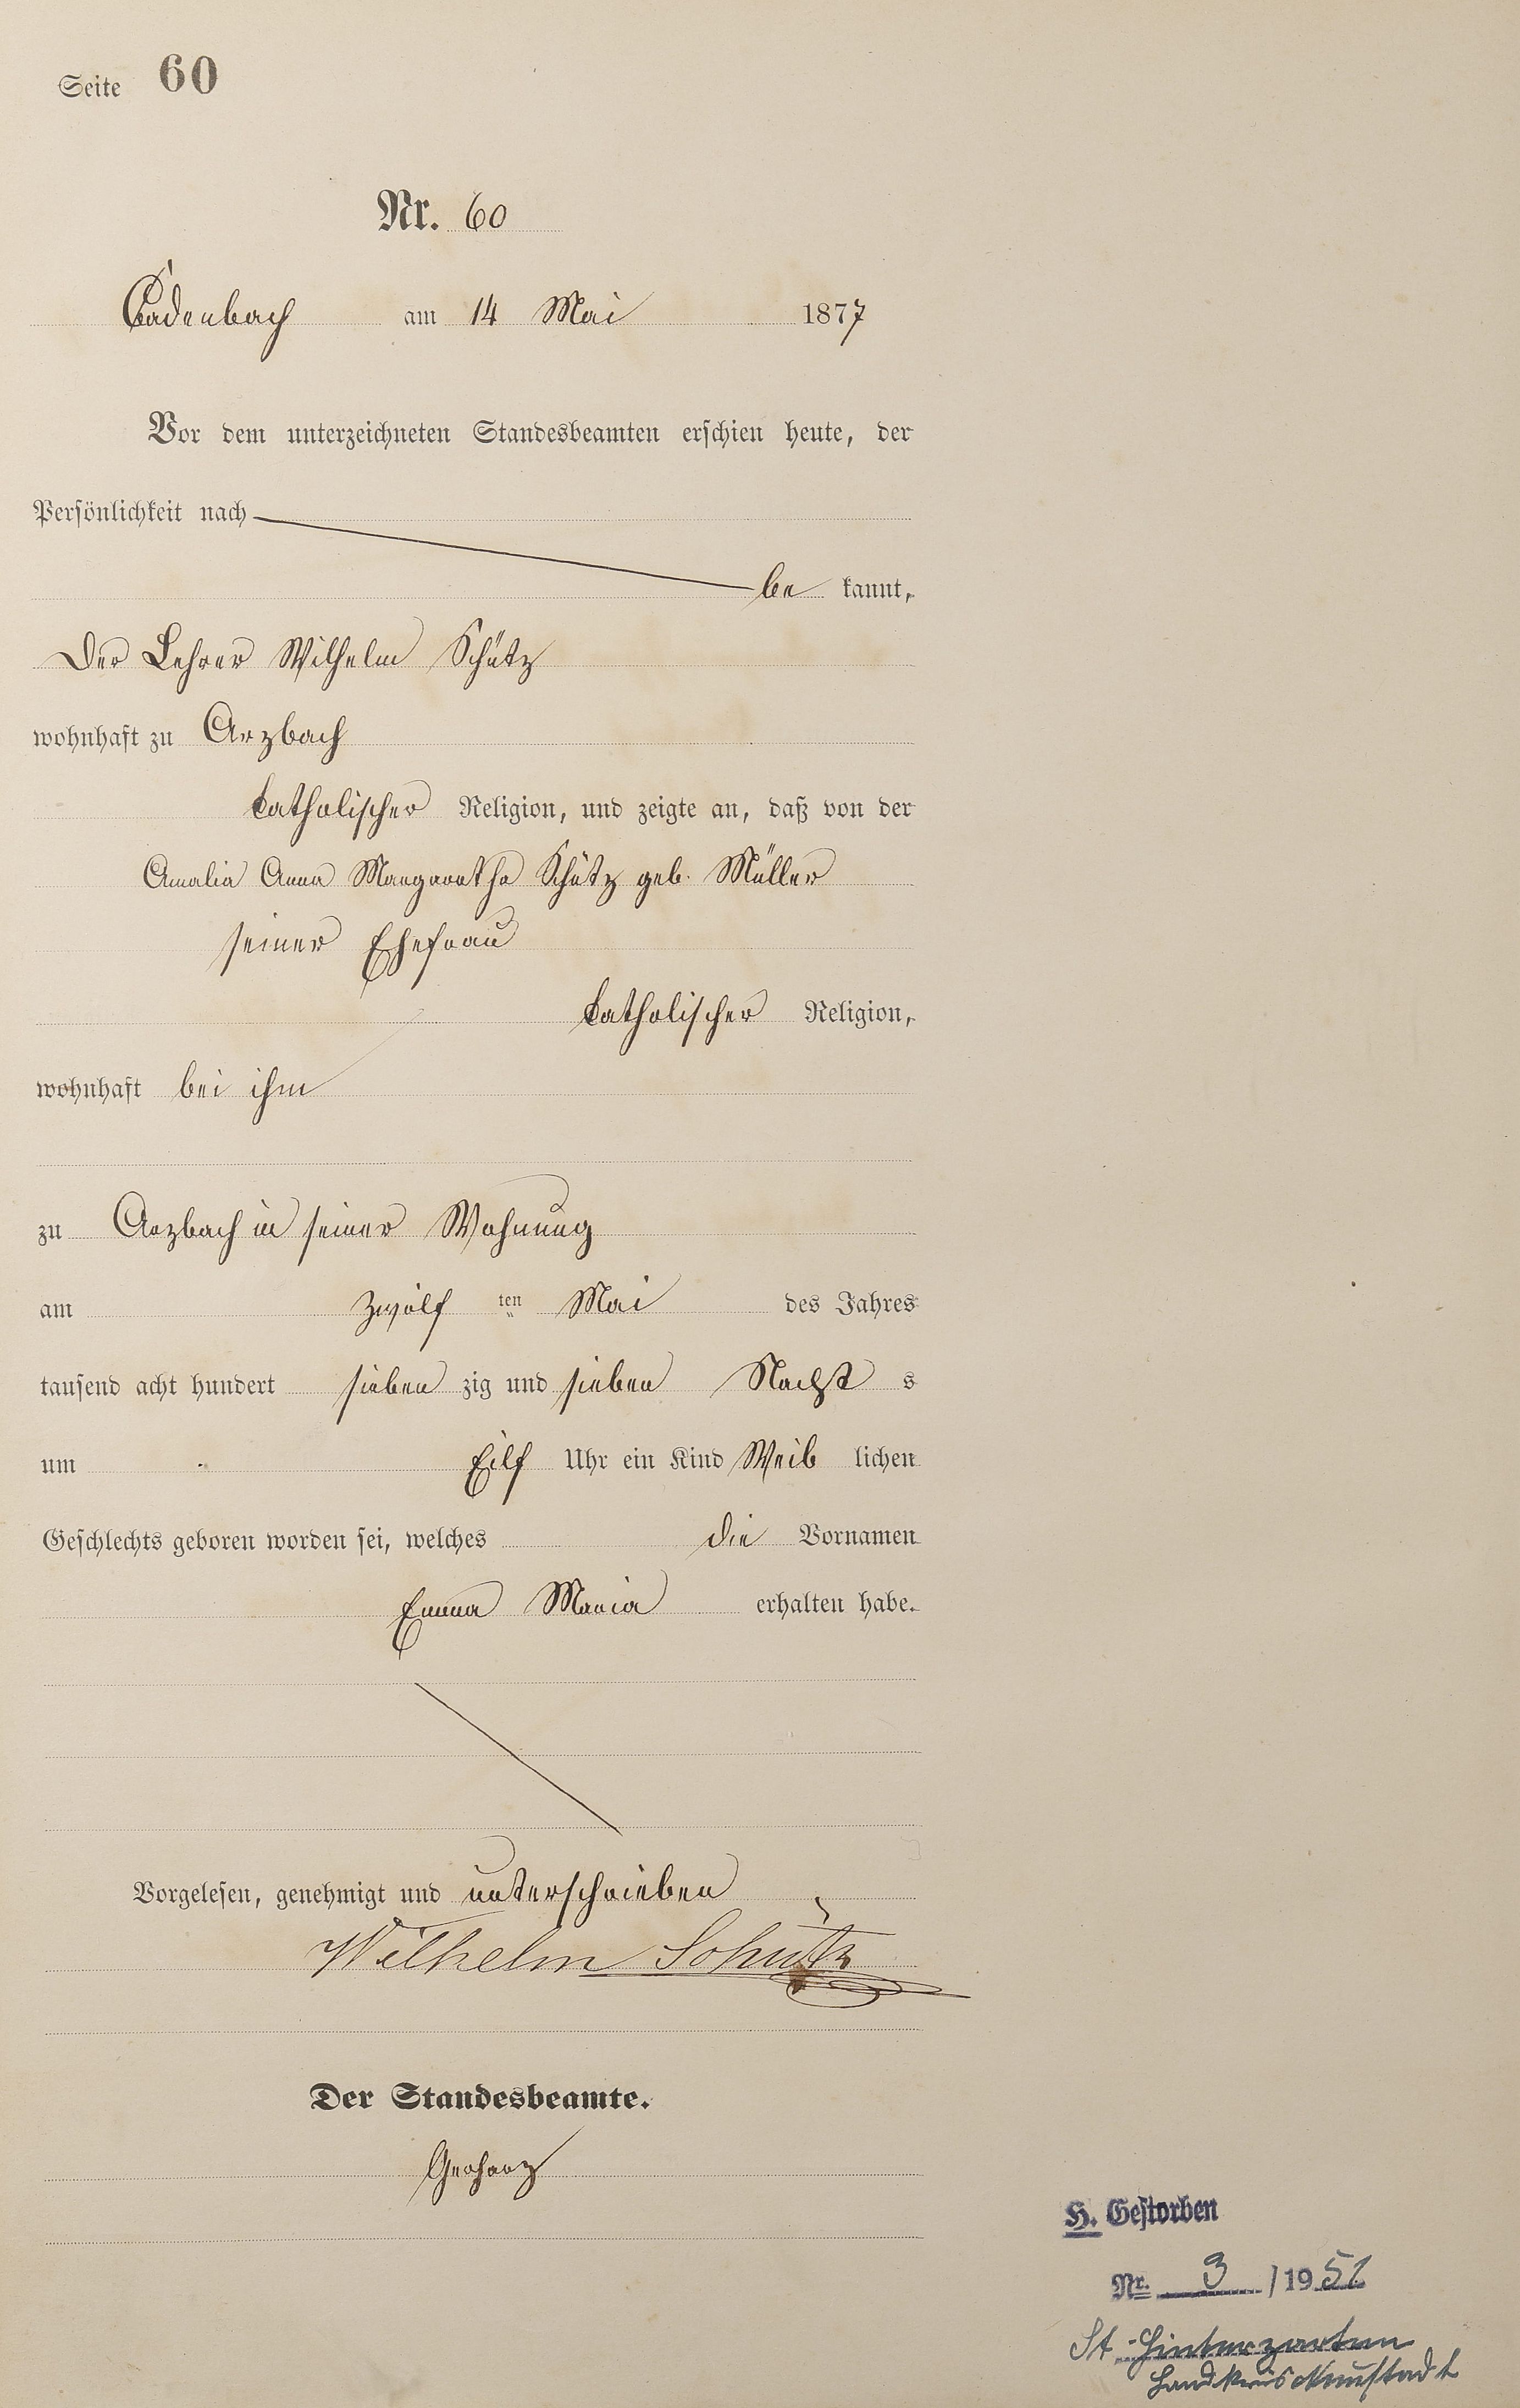 Seite 60
Nr. 60
Cadenbach am 14 Mai 1877
Vor dem unterzeichneten Standesbeamten erschien heute, der
Persönlichkeit nach
be kannt,
Der Lehrer Wilhelm Schütz
wohnhaft zu Arzbach
katholischer Religion, und zeigte an, daß von der
Amalia Anna Margaretha Schütz geb. Müller
seiner Ehefrau
katholischer Religion,
wohnhaft bei ihm
zu Arzbach in seiner Wohnung
am zwölf ten Mai des Jahres
tausend acht hundert sieben zig und sieben Nachts
um Eilf Uhr ein Kind Weib lichen
Geschlechts geboren worden sei, welches die Vornamen
Emma Maria erhalten habe.
Vorgelesen, genehmigt und unterschrieben
Wilhelm Schütz
Der Standesbeamte.
Gerharz
H. Gestorben
Nr. 3 /1951
St. Hinterzarten
Landkreis Neustadt